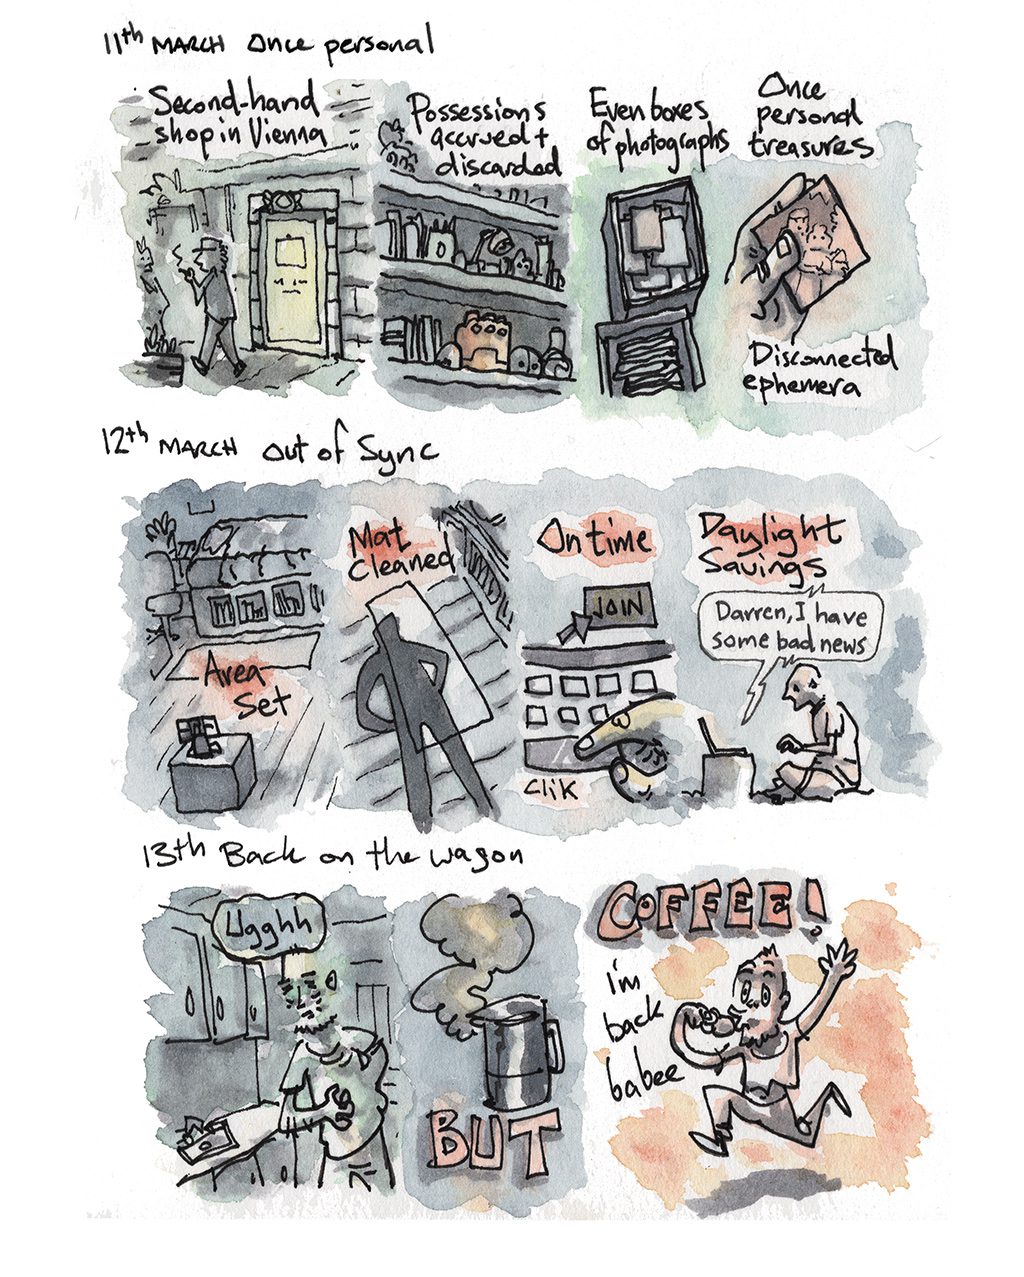 11th MARCH Once personal
Second-hand
shop in Vienna
Possessions
accrued +
discarded
Even boxes
of photographs
Once
personal
treasures
Disconnected
ephemera
12th MARCH Out of Sync
Area
Set
Mat
Cleaned
On time
JOIN
CLIK
Daylight
Savings
Darren, I have
some bad news
13th Back on the wagon
Ugghh
BUT
COFFEE!
i'm
back
babee